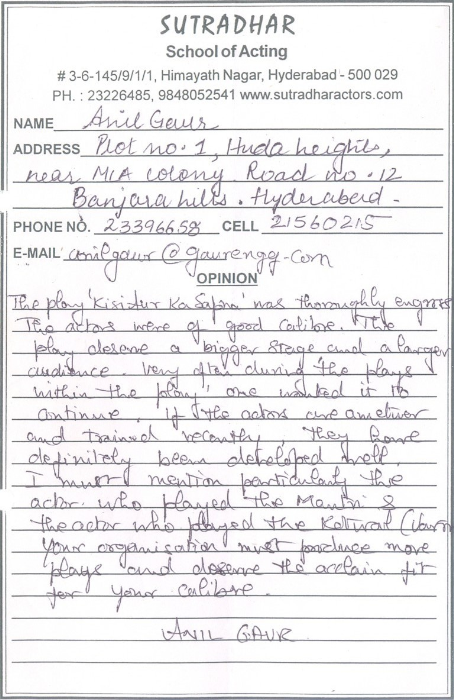 SUTRADHAR
School of Acting
# 3-6-145/9/1/1, Himayath Nagar, Hyderabad - 500 029
PH. : 23226485, 9848052541 www.sutradharactors.com
NAME Anil Gaur
ADDRESS Plot no. 1, Huda heights,
near MLA colony Road no. 12
Banjara hills. Hyderabad -
PHONE NO. 23396658 CELL 21560215
E-MAIL anilgaur@gaurengg.com
OPINION
The play 'Ka Sapna' was thoroughly
The actors were of good calibre. The
play deserve a bigger stage and a larger
audience. Very often during the plays
within the play, one wanted it to
continue. If the actors are
and trained recently, they have
definitely been developed well.
I must mention particularly the
actor who played the Mantri &
the actor who played the Kotwal
Your organisation must produce more
plays and deserve the acclaim fit
for your calibre.
ANIL GAUR